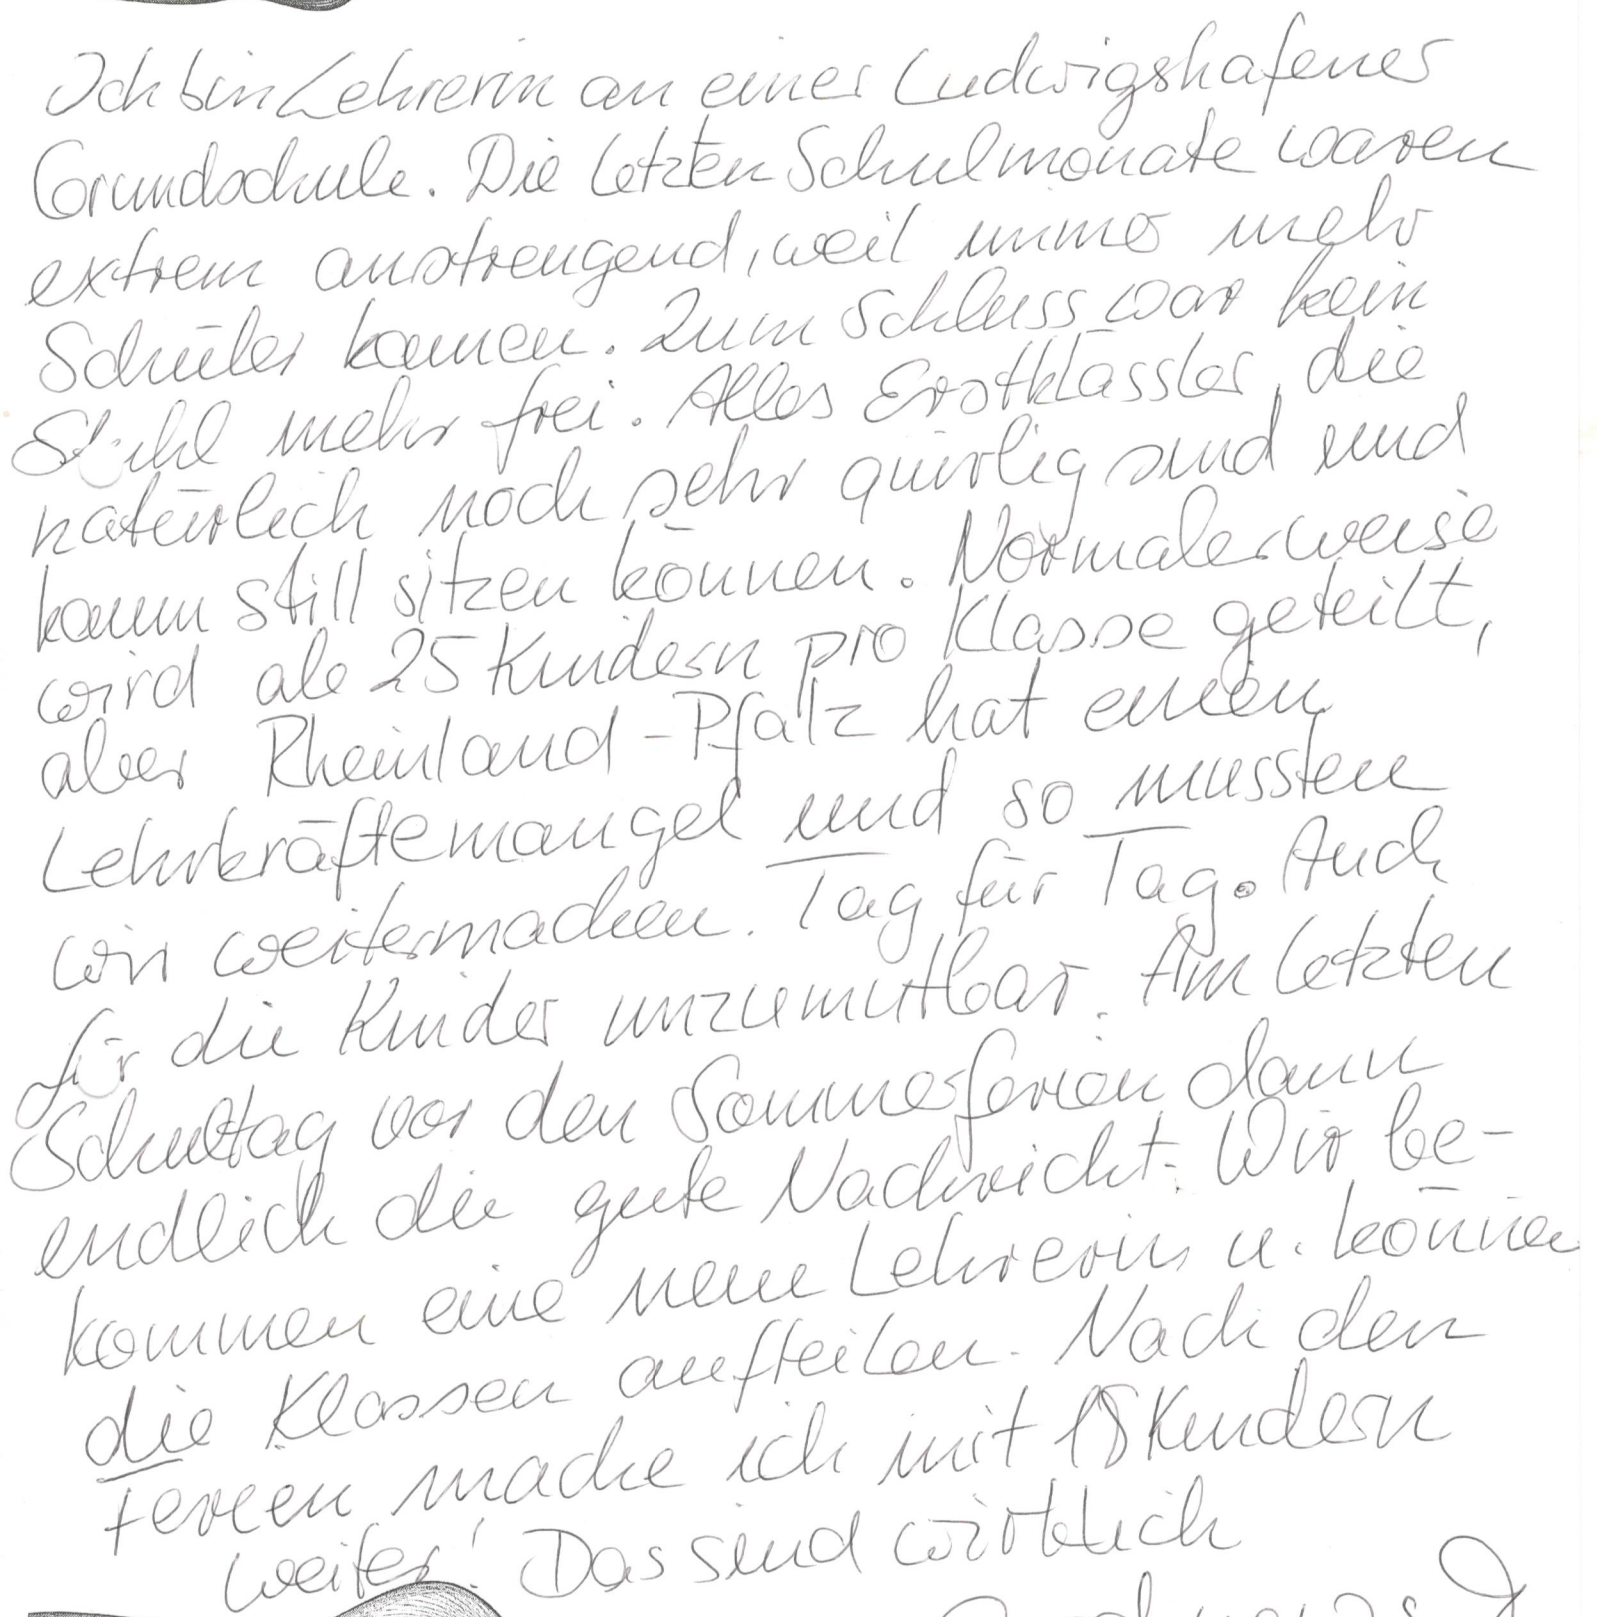 Ich bin Lehrerin an einer Ludwigshafener
Grundschule. Die letzten Schulmonate waren
extrem anstrengend, weil immer mehr
Schüler kamen. Zum Schluss war kein
Stuhl mehr frei. Alles Erstklässler, die
natürlich noch sehr quirlig sind und
kaum still sitzen können. Normalerweise
wird ab 25 Kindern pro Klasse geteilt,
aber Rheinland-Pfalz hat einen
Lehrkräftemangel und so mussten
wir weitermachen. Tag für Tag. Auch
für die Kinder unzumutbar. Am letzten
Schultag vor den Sommerferien dann
endlich die gute Nachricht: Wir be-
kommen eine neue Lehrerin u. können
die Klassen aufteilen. Nach den
Ferien mache ich mit 18 Kindern
weiter! Das sind wirklich